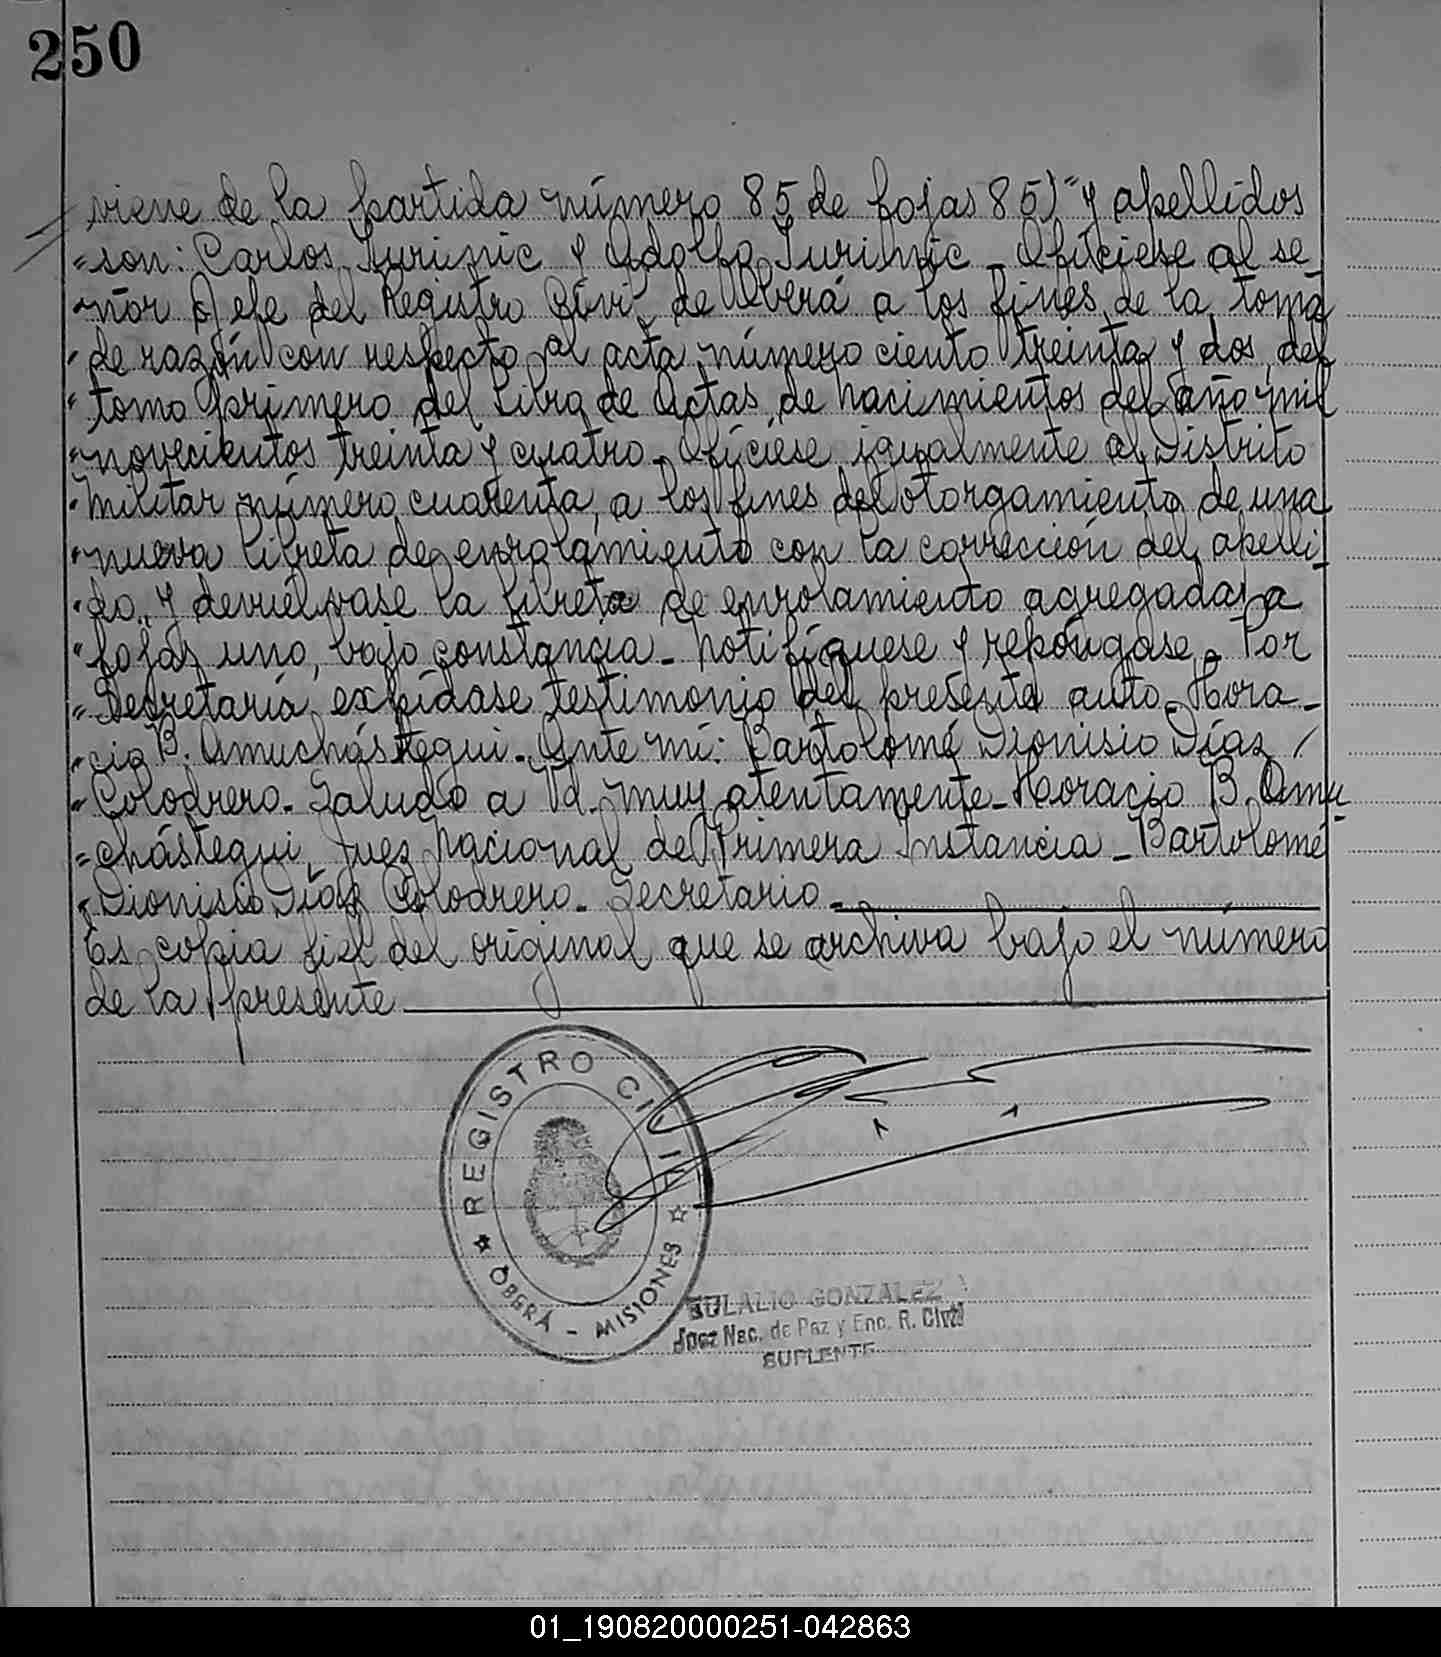 250
viene de la partida número 85 de fojas 85) " y apellidos
"son: Carlos Iurinic y Adolfo Iurinic - Ofíciese al se-
"ñor Jefe del Registro Civil de Oberá a los fines de la toma
"de razón con respecto al acta número ciento treinta y dos, del
"tomo primero del Libro de Actas de Nacimientos del año mil
"novecientos treinta y cuatro. Ofíciese igualmente al Distrito
"Militar número cuarenta, a los fines del otorgamiento de una
"nueva libreta de enrolamiento con la corrección del apelli-
"do, y devuélvase la libreta de enrolamiento agregada a
"fojas uno, bajo constancia - Notifíquese y repóngase - Por
"Secretaría, expídase testimonio del presente auto - Hora-
"cio B. Amuchástegui - Ante mí: Bartolomé Dionisio Díaz /
"Colodrero - Saludo a Vd. muy atentamente - Horacio B. Amu-
"chástegui, Juez Nacional de Primera Instancia - Bartolomé
"Dionisio Díaz Colodrero - Secretario -
Es copia fiel del original que se archiva bajo el número
de la presente
REGISTRO CIVIL
OBERÁ - MISIONES
EULALIO GONZALEZ
Juez Nac. de Paz y Enc. R. Civil
SUPLENTE
01_190820000251-042863